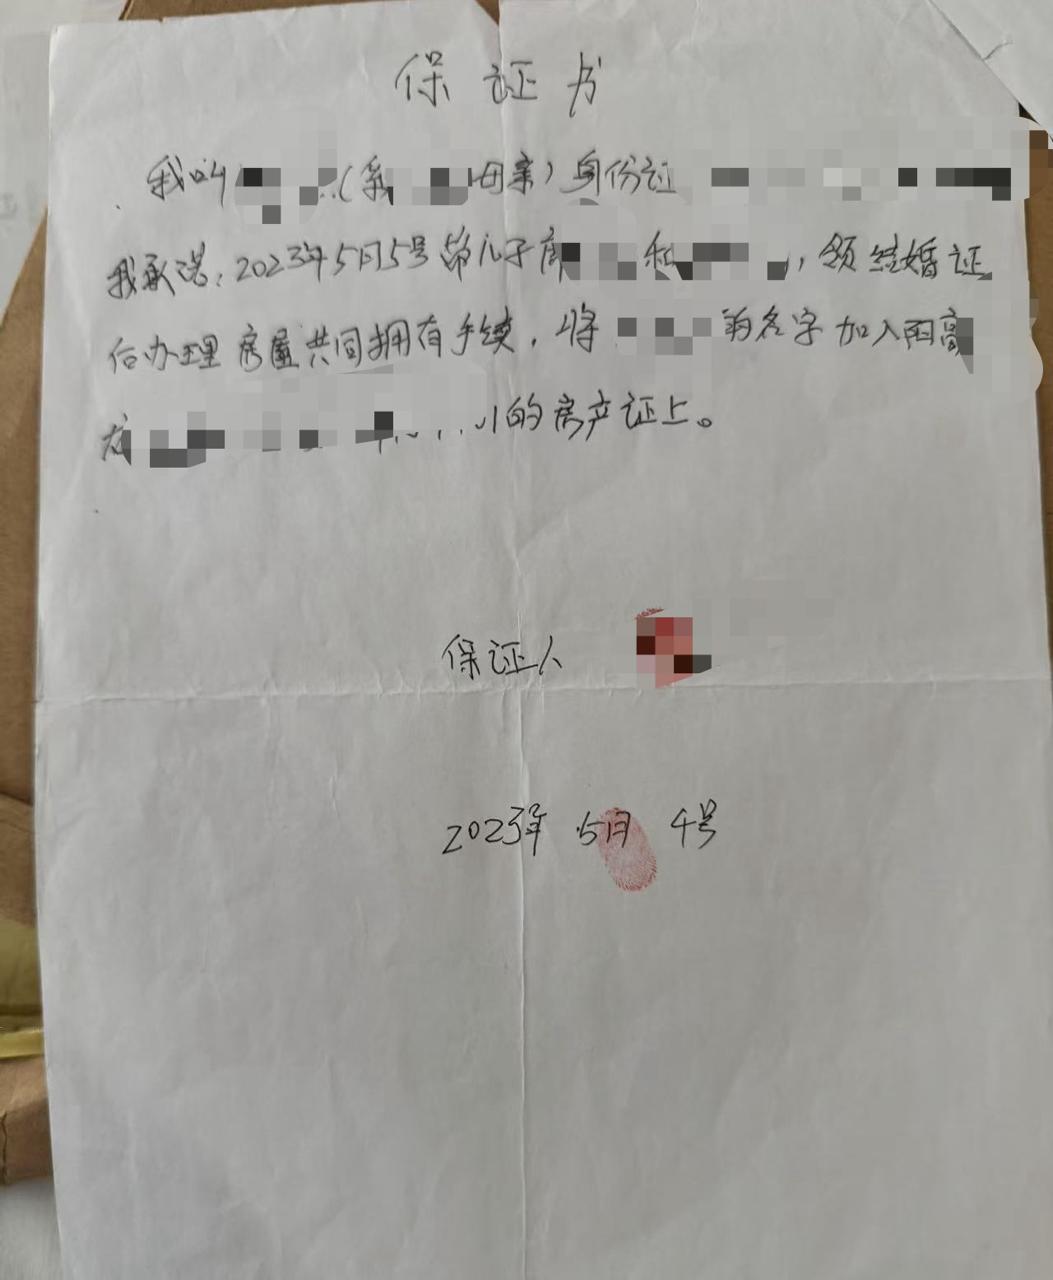 保证书
我叫（系母亲）身份证
我承诺：2023年5月5号带儿子唐和，领结婚证
后办理房屋共同拥有手续，将的名字加入西高
的房产证上。
保证人
2023年 5月 4号